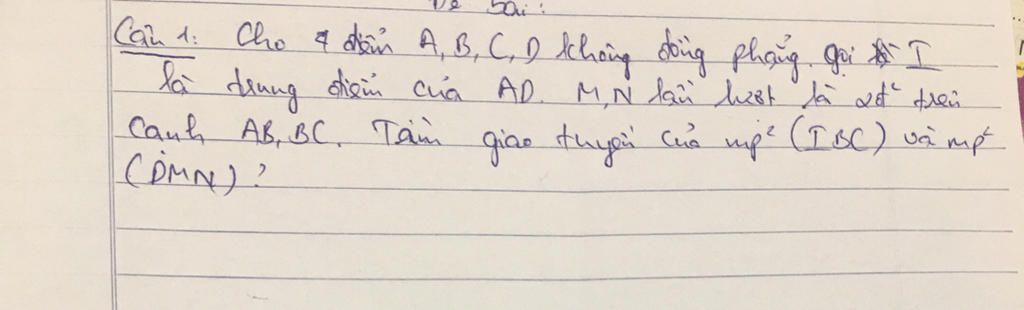 Đề bài:
Câu 1: Cho 4 điểm A, B, C, D không đồng phẳng. gọi I
là trung điểm của AD. M, N lần lượt là 2đ' trên
cạnh AB, BC. Tìm giao tuyến của mp² (IBC) và mp²
(DMN)?